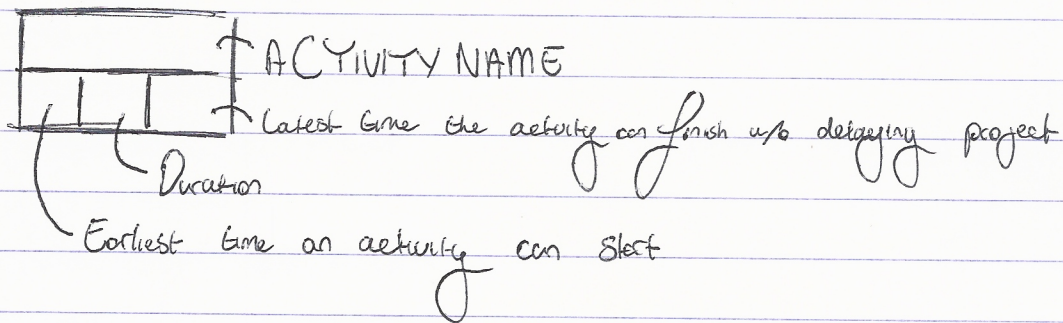 ACTIVITY NAME
Latest time the activity can finish w/o delaying project
Duration
Earliest time an activity can start